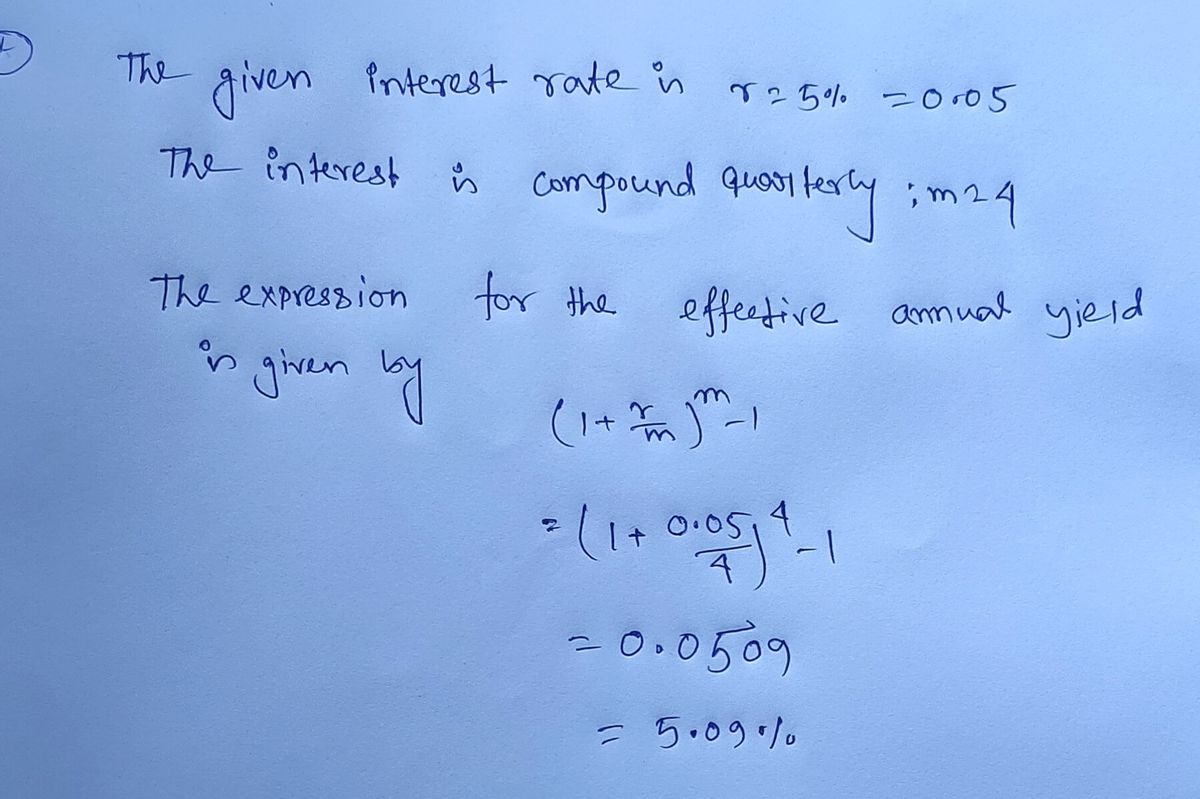 The given interest rate is r = 5% = 0.05
The interest is compound quarterly ; m = 4
The expression for the effective annual yield
is given by
(1 + r/m)^m - 1
= (1 + 0.05/4)^4 - 1
= 0.0509
= 5.09%